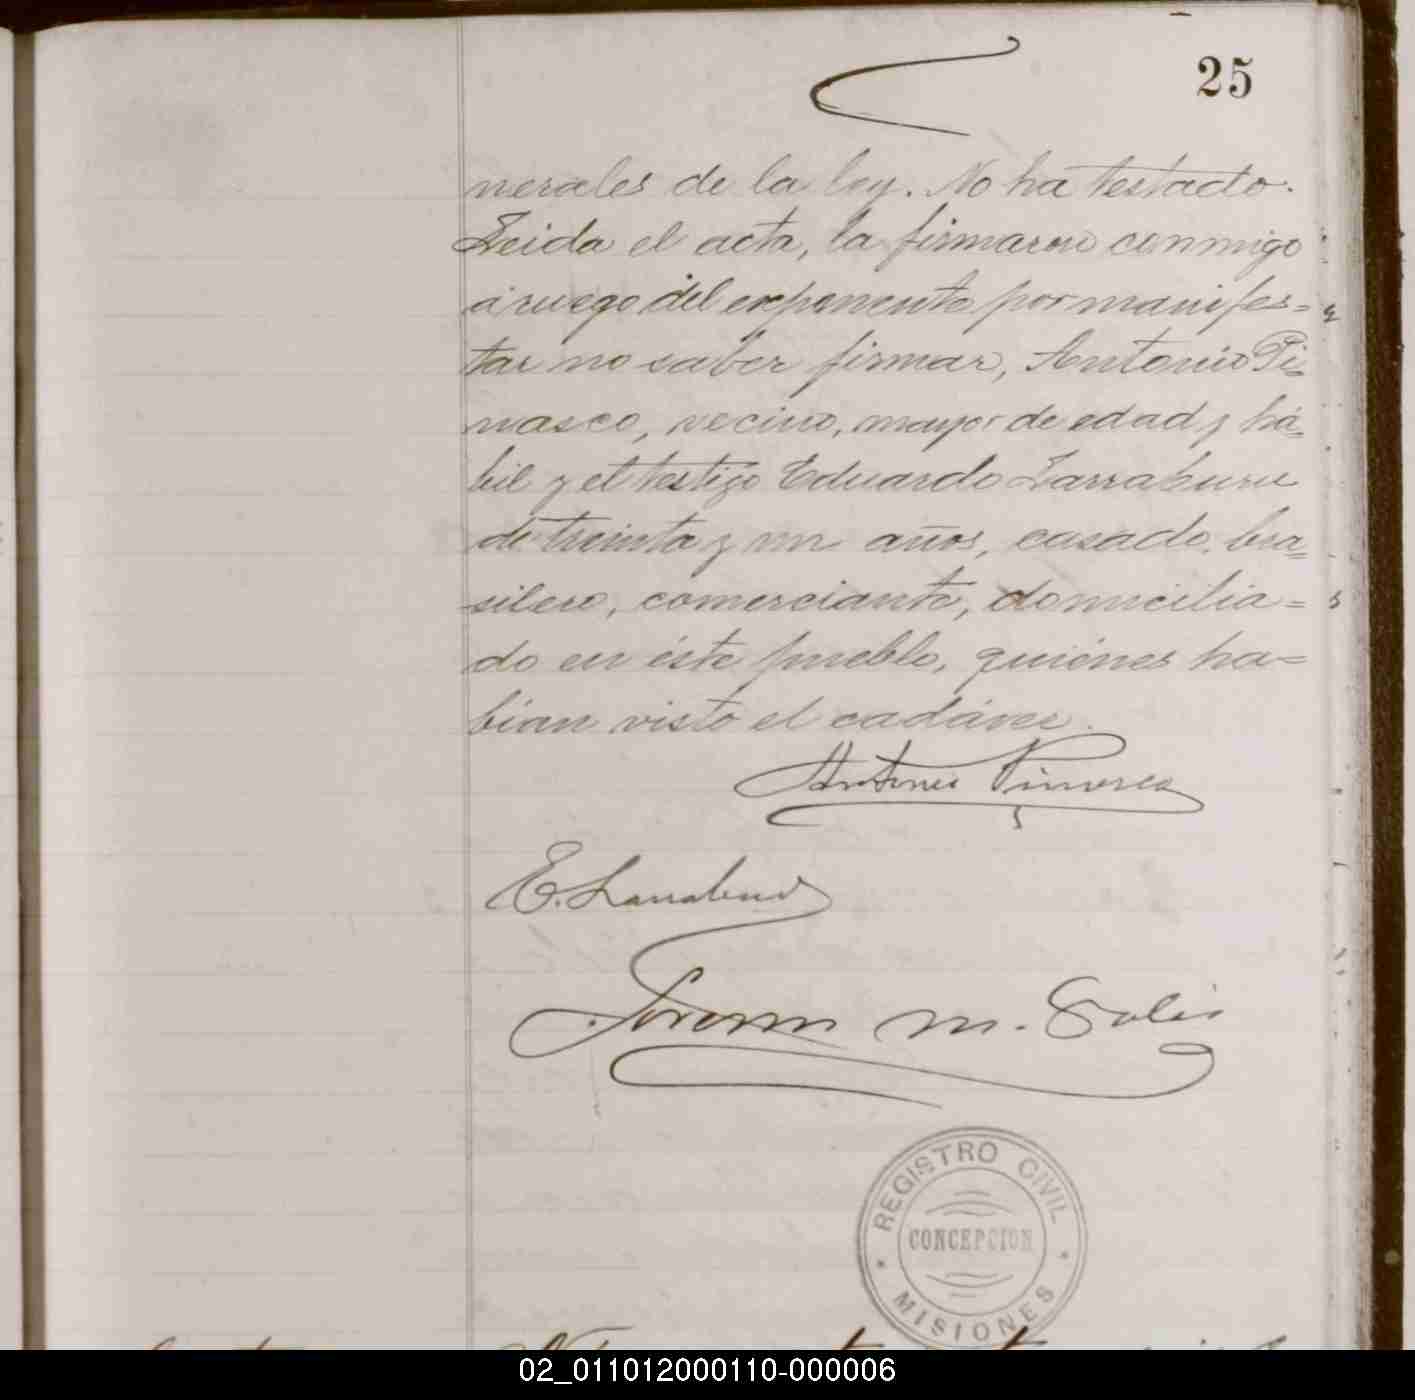 25
nerales de la ley. No ha testado.
Leida el acta, la firmaron conmigo
á ruego del exponente por manifes=
tar no saber firmar, Antonio Pi=
nasco, vecino, mayor de edad y há=
bil y el testigo Eduardo Larraburu
de treinta y un años, casado, bra=
silero, comerciante, domicilia=
do en éste pueblo, quiénes ha=
bian visto el cadáver.
Antonio Pinasco
E. Larraburu
M. Solis
REGISTRO CIVIL
CONCEPCION
MISIONES
02_011012000110-000006